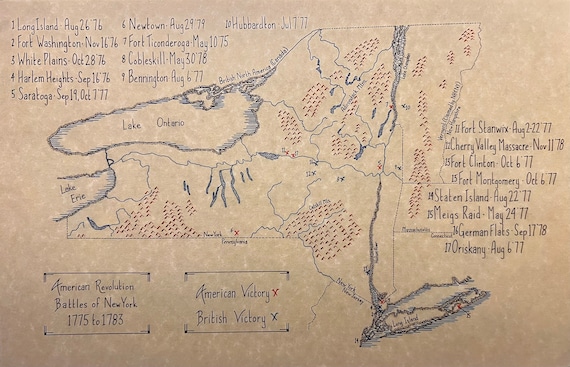 1 Long Island · Aug 26 '76
2 Fort Washington · Nov 16 '76
3 White Plains · Oct 28 '76
4 Harlem Heights · Sep 16 '76
5 Saratoga · Sep 19, Oct 7 '77
6 Newtown · Aug 29 '79
7 Fort Ticonderoga · May 10 '75
8 Cobleskill · May 30 '78
9 Bennington Aug 6 '77
10 Hubbardton · Jul 7 '77
British North America (Canada)
Lake Ontario
Lake Erie
11 Fort Stanwix · Aug 2-22 '77
12 Cherry Valley Massacre · Nov 11 '78
13 Fort Clinton · Oct 6 '77
13 Fort Montgomery · Oct 6 '77
14 Staten Island · Aug 22 '77
15 Meigs Raid · May 24 '77
16 German Flats · Sep 17 '78
17 Oriskany · Aug 6 '77
New York
Pennsylvania
Massachusetts
Connecticut
New York
New Jersey
Long Island
American Revolution
Battles of New York
1775 to 1783
American Victory x
British Victory x